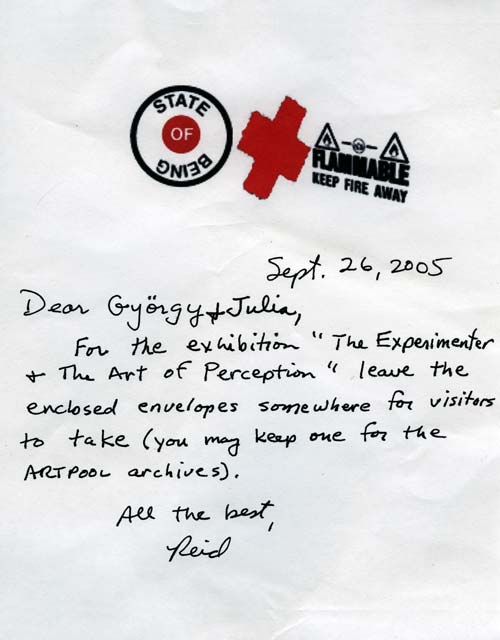 STATE
OF
BEING
FLAMMABLE
KEEP FIRE AWAY
Sept. 26, 2005
Dear György & Julia,
For the exhibition "The Experimenter
& The Art of Perception" leave the
enclosed envelopes somewhere for visitors
to take (you may keep one for the
ARTPOOL archives).
All the best,
Reid